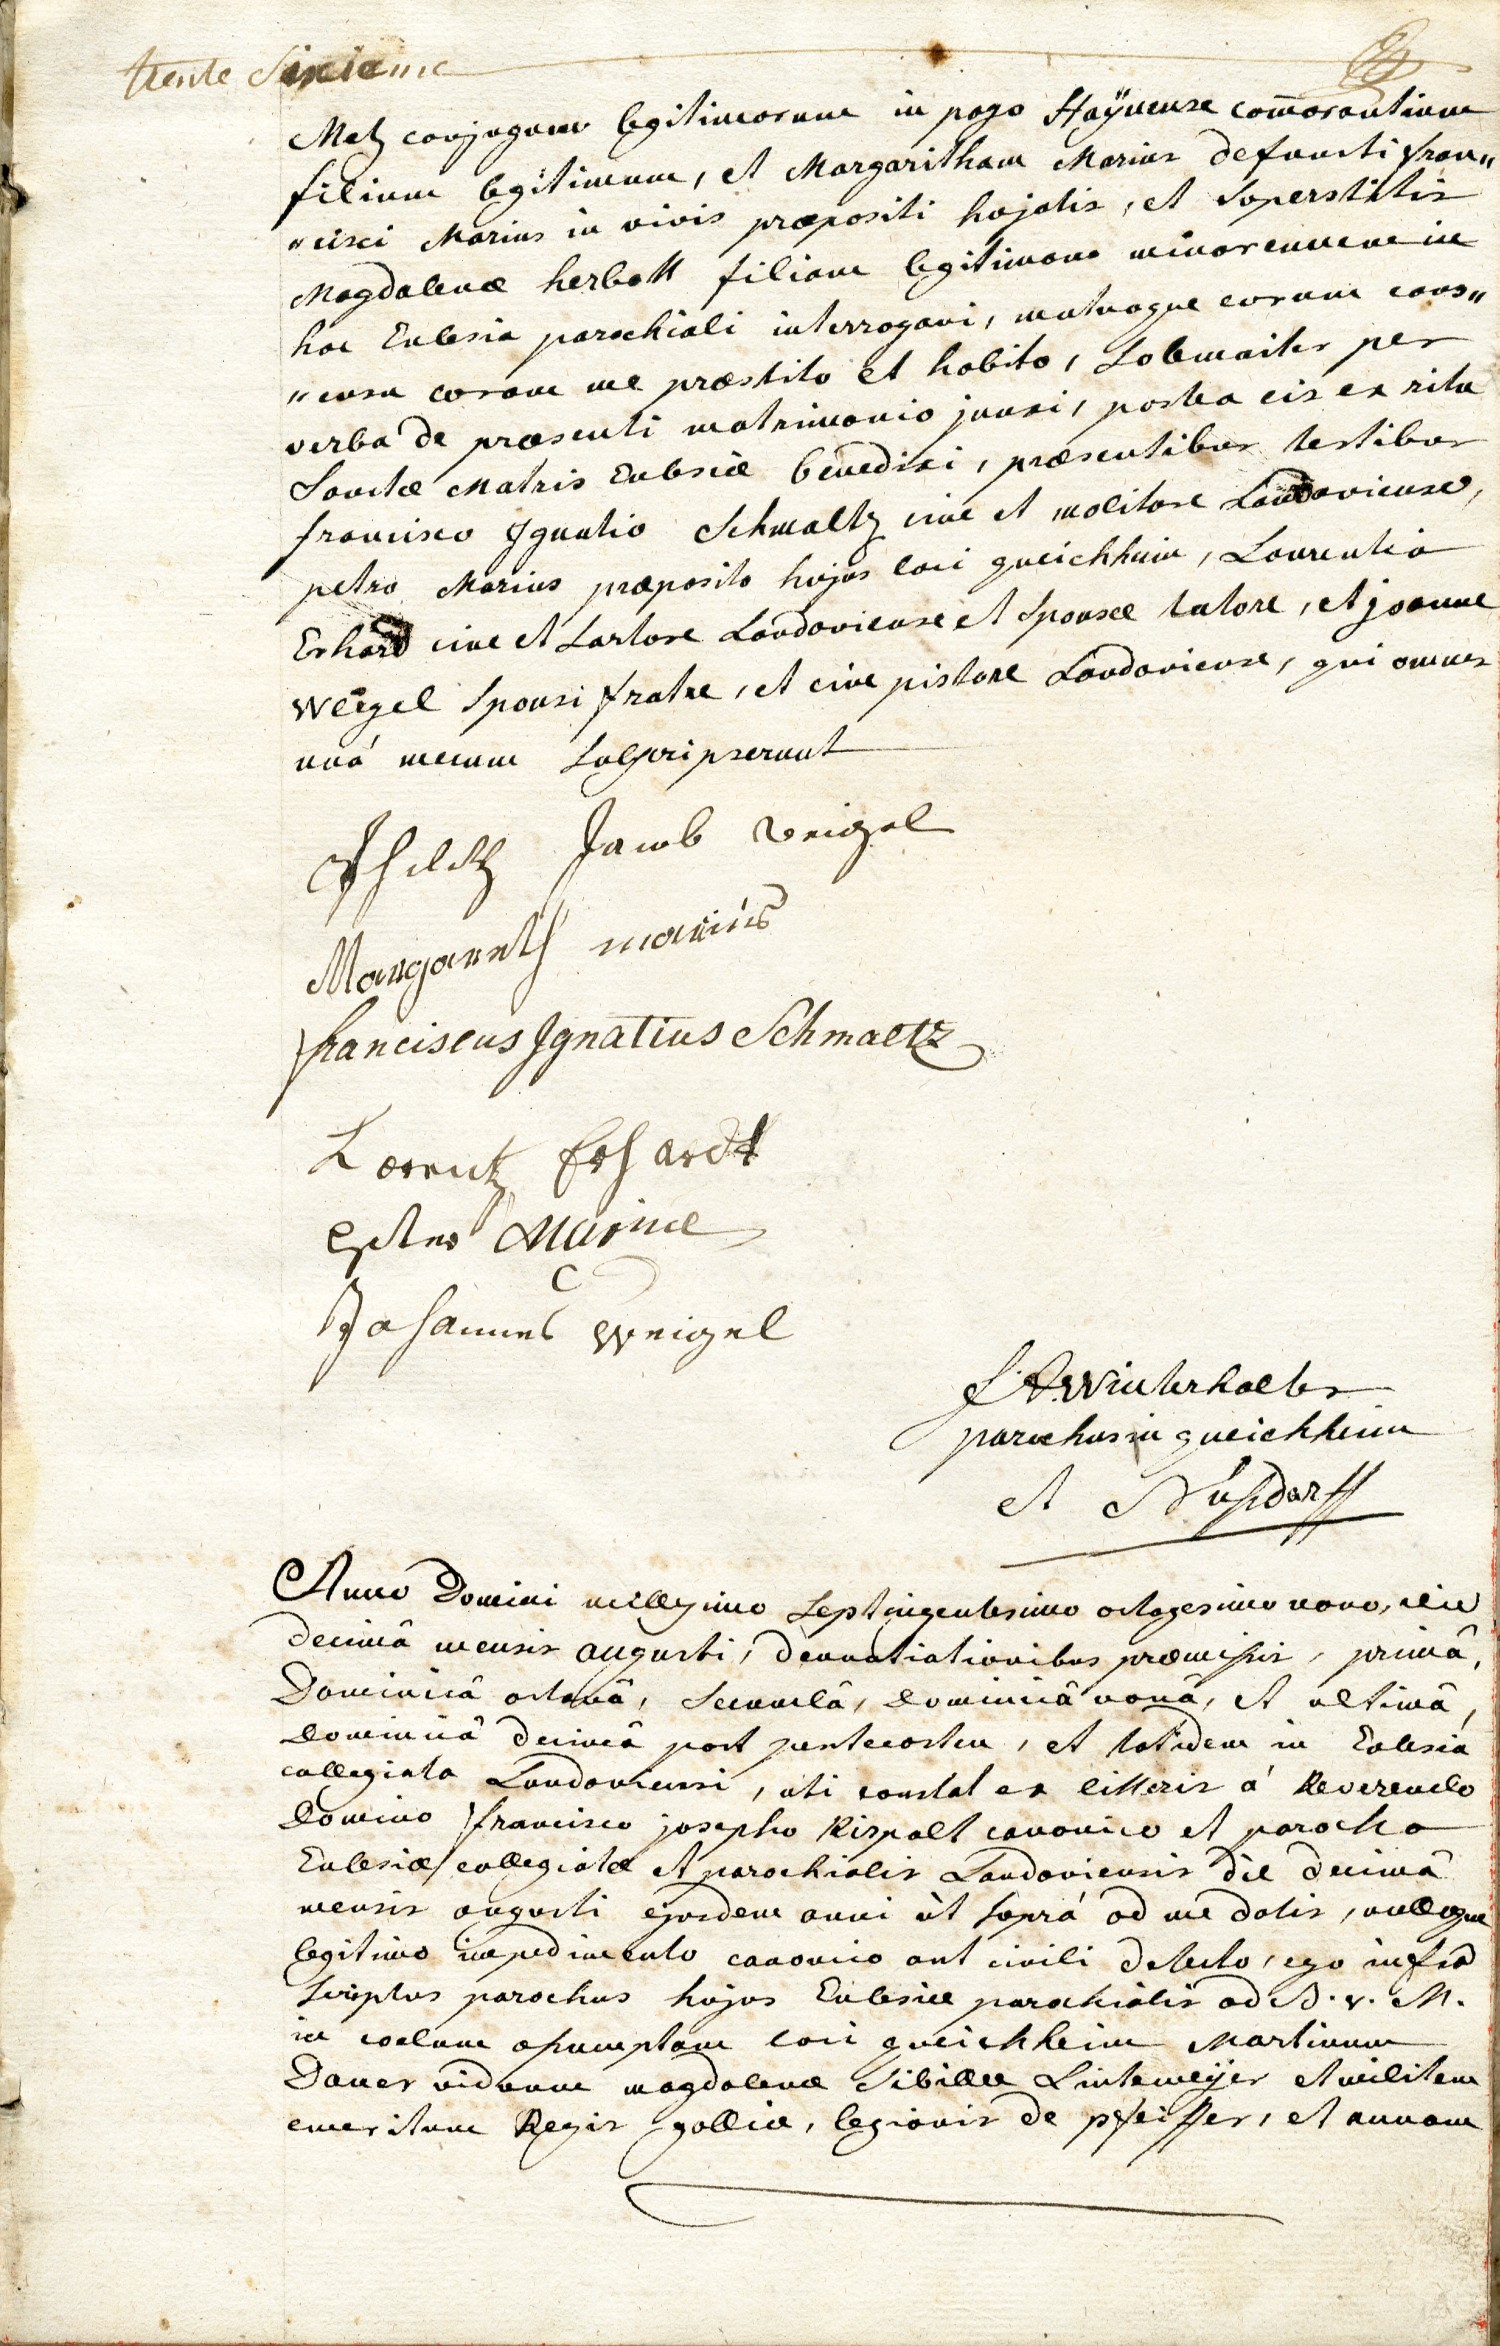 trente Sixieme
Metz conjugum legitimorum in pago Haÿnense com̄orantium
filium legitimum, et Margaritham Marius defuncti fran„
„cisci Marius in vivis præpositi hujatis, et Superstitis
Magdalenæ herbott filiam legitimam minorennem in
hac Eclesia parochiali interrogavi, mutuoque eorum cons„
„ensu coram me præstito et habito, Solemniter per
verba de præsenti matrimonio junxi, postea eis ex ritu
Sanctæ Matris Eclesiæ benedixi, præsentibus testibus
francisco Ignatio Schmaltz cive et molitore Landaviense,
petro Marius præposito hujus loci queichheim, Laurentio
Erhard cive et Sartore Landaviense et Sponsæ tutore, et joanne
Weigel Sponsi fratre, et cive pistore Landaviense, qui omnes
unà mecum Subscripserunt
Jacob Weigel
Margareth marius
franciscus Ignatius Schmaltz
Lorentz Erhardt
Petter Marius
Johannes Weigel
Winterhalter
parochus in queichheim
et Nusdorff
Anno Domini millesimo Septingentesimo octogesimo nono, die
decimâ mensis augusti, denuntiationibus præmissis, primâ,
Dominicâ octavâ, Secundâ, Dominicâ nonâ, et ultimâ,
Dominicâ decimâ post pentecosten, et totidem in Eclesia
collegiata Landaviensi, uti constat ex litteris à Reverendo
Domino francisco josepho Rispalt canonico et parocho
Eclesiæ collegiatæ et parochialis Landaviensis die decimâ
mensis augusti ejusdem anni ùt Suprà ad me datis, nulloque
legitimo impedimento canonico aut civili detecto, ego infra
Scriptus parochus hujus Eclesiæ parochialis ad B. V. M.
in coelum assumptam loci queichheim Martinum
Daner viduum magdalenæ Sibillæ Lintemeÿer et militem
emeritum Regis galliæ, legionis de pfeiffer, et annam